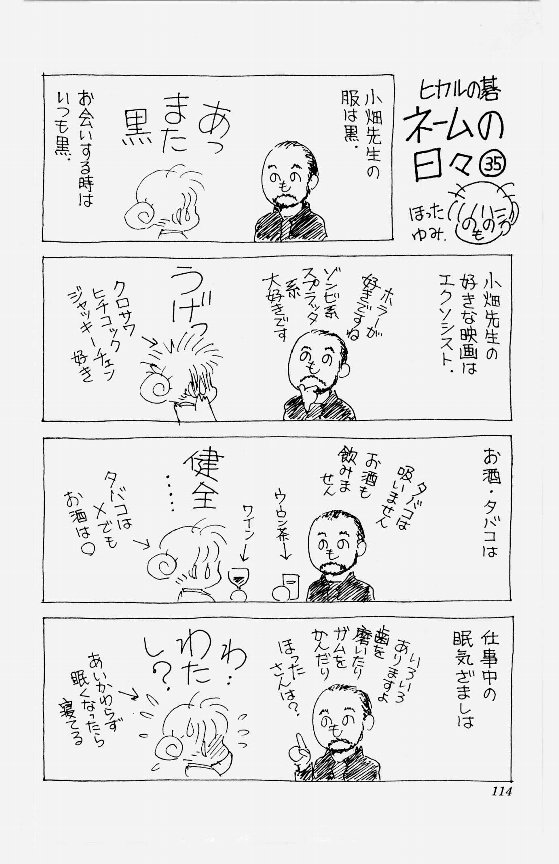 ヒカルの碁
ネームの
日々㉟
ほった
ゆみ.
小畑先生の
服は黒.
あっ
また
黒
お会いする時は
いつも黒.
小畑先生の
好きな映画は
エクソシスト.
ホラーが
好きですね
ゾンビ系
スプラッタ
系
大好きです
うげっ
クロサワ
ヒチコック
ジャッキーチェン
好き
お酒・タバコは
タバコは
吸いません
お酒も
飲みま
せん
ウーロン茶→
ワイン→
健全
……
タバコは
×でも
お酒は○
仕事中の
眠気ざましは
いろいろ
ありますよ
歯を
磨いたり
ガムを
かんだり
ほった
さんは?
わ…
わた
し?
あいかわらず
眠くなったら
寝てる
114